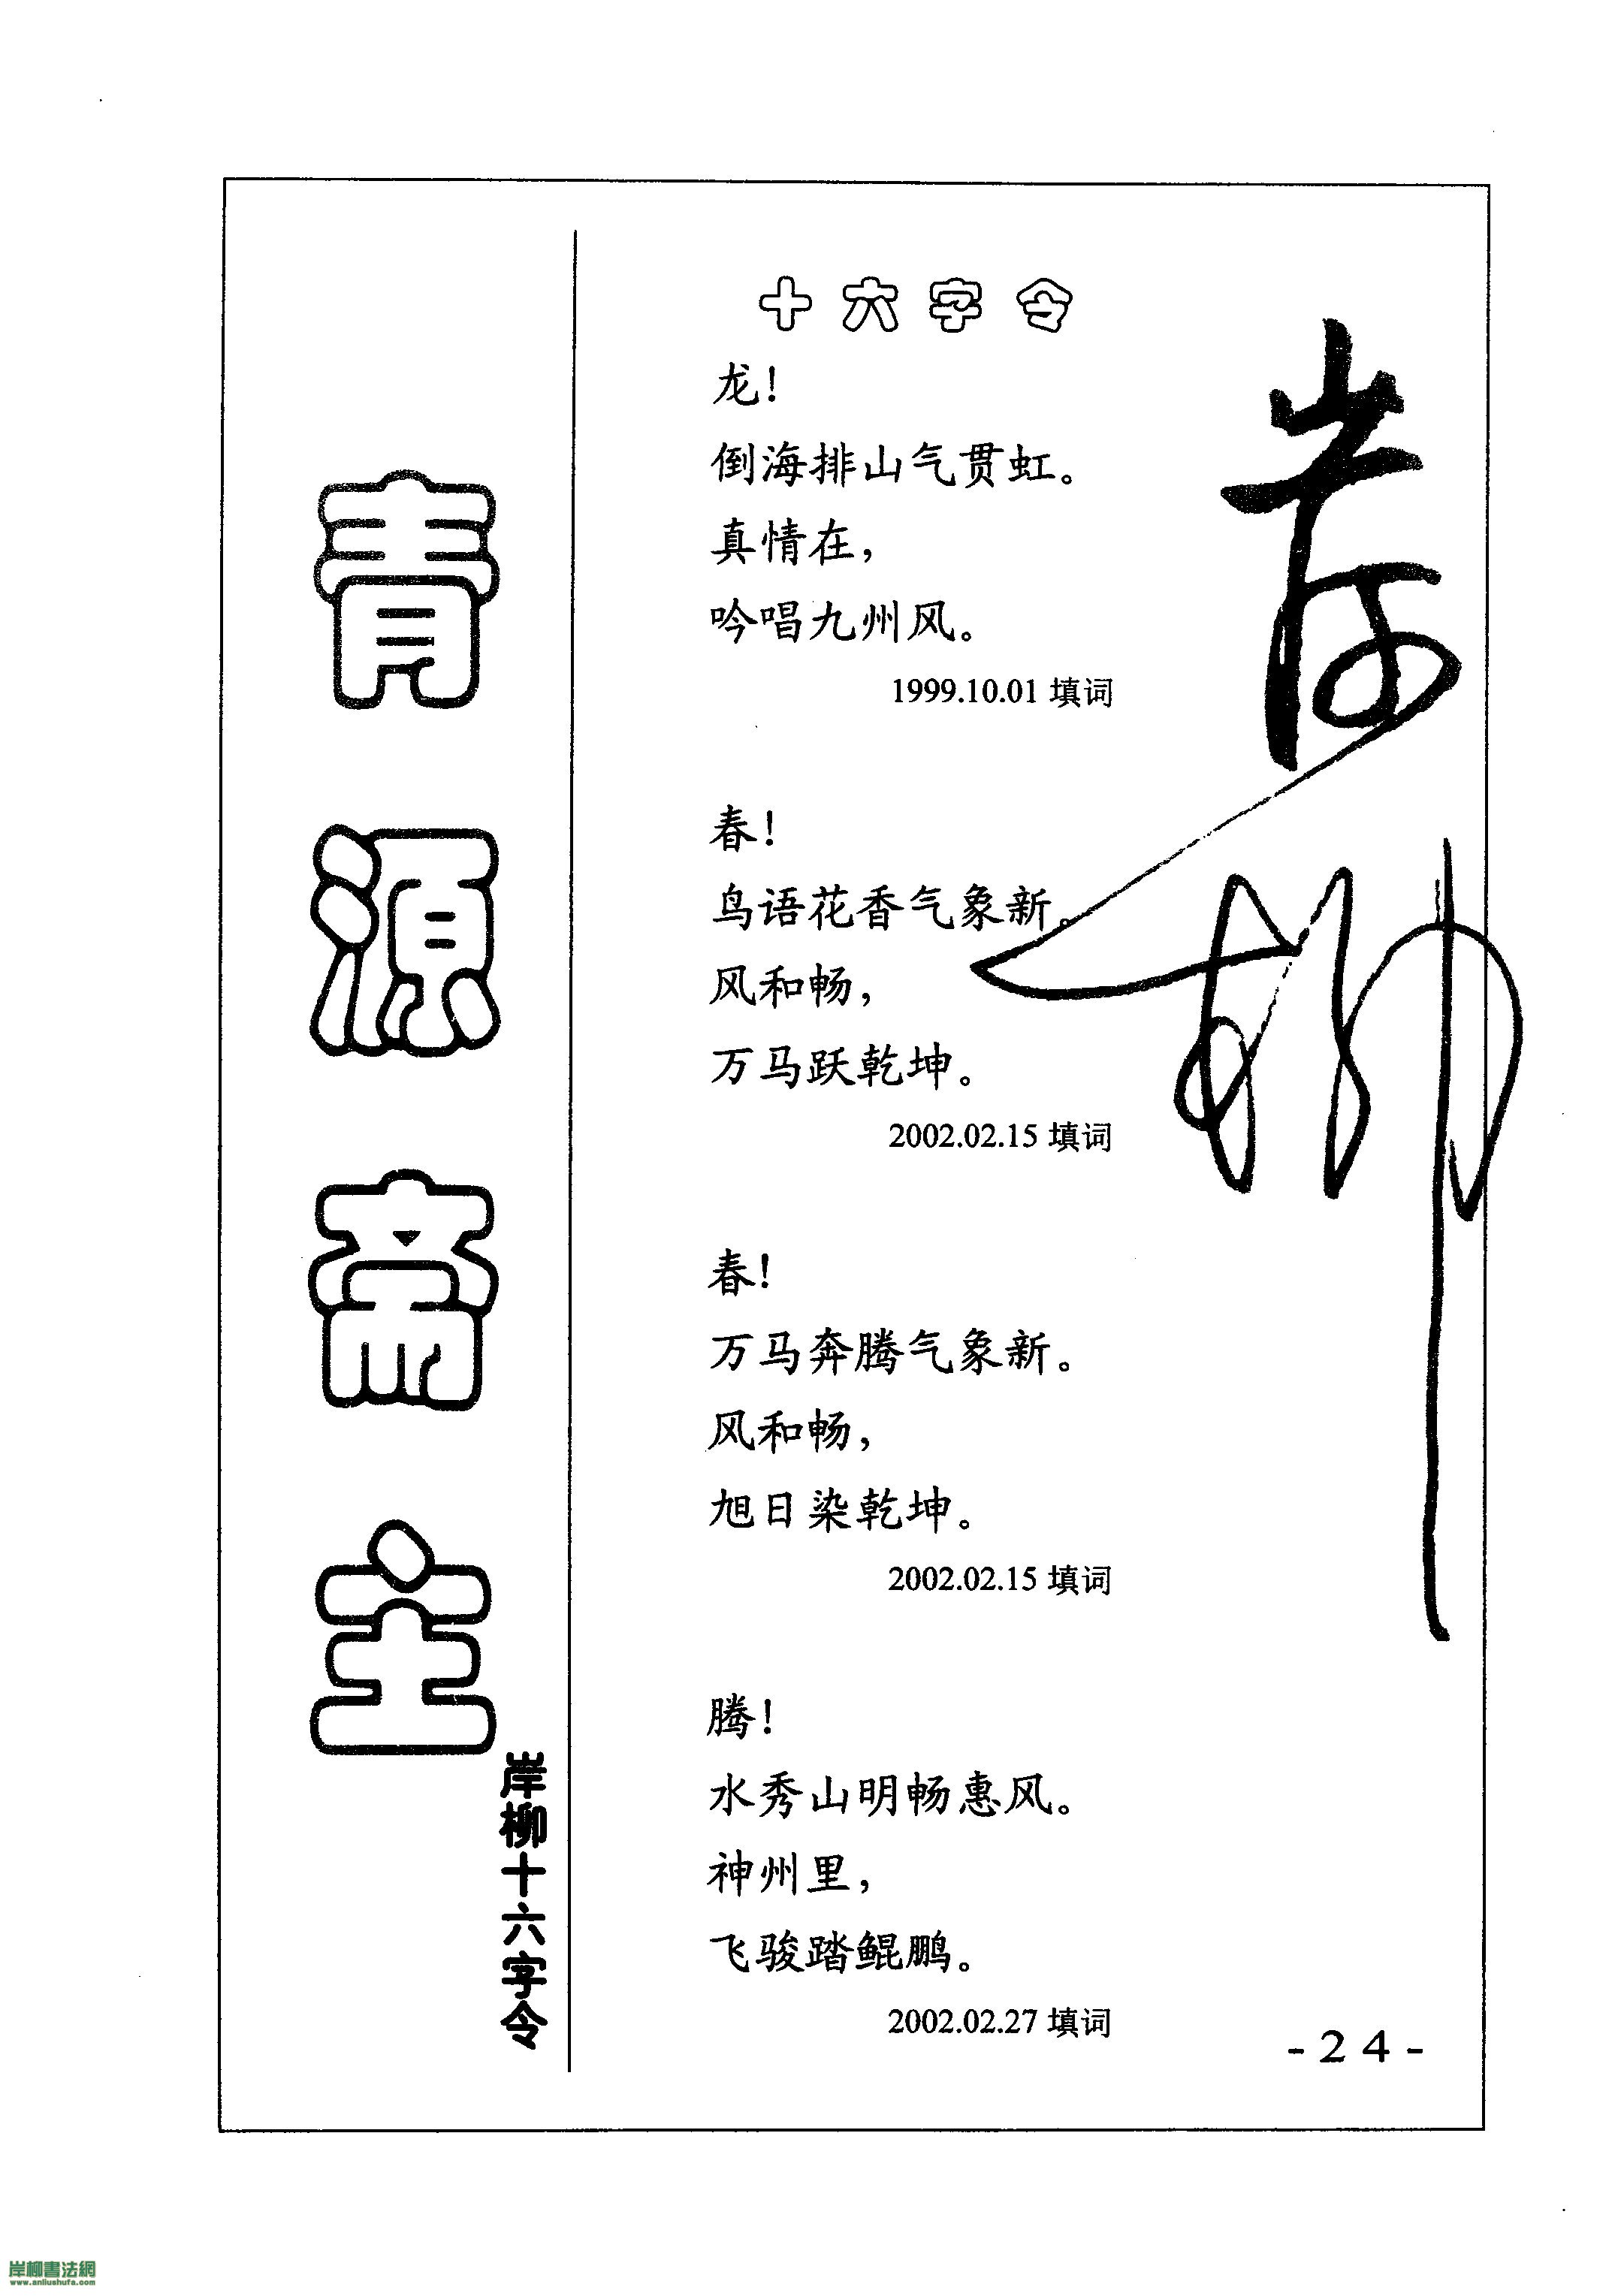 青源斋主
岸柳十六字令
十六字令
龙！
倒海排山气贯虹。
真情在，
吟唱九州风。
1999.10.01 填词
春！
鸟语花香气象新。
风和畅，
万马跃乾坤。
2002.02.15 填词
春！
万马奔腾气象新。
风和畅，
旭日染乾坤。
2002.02.15 填词
腾！
水秀山明畅惠风。
神州里，
飞骏踏鲲鹏。
2002.02.27 填词
岸柳
-24-
岸柳書法網
www.anliushufa.com